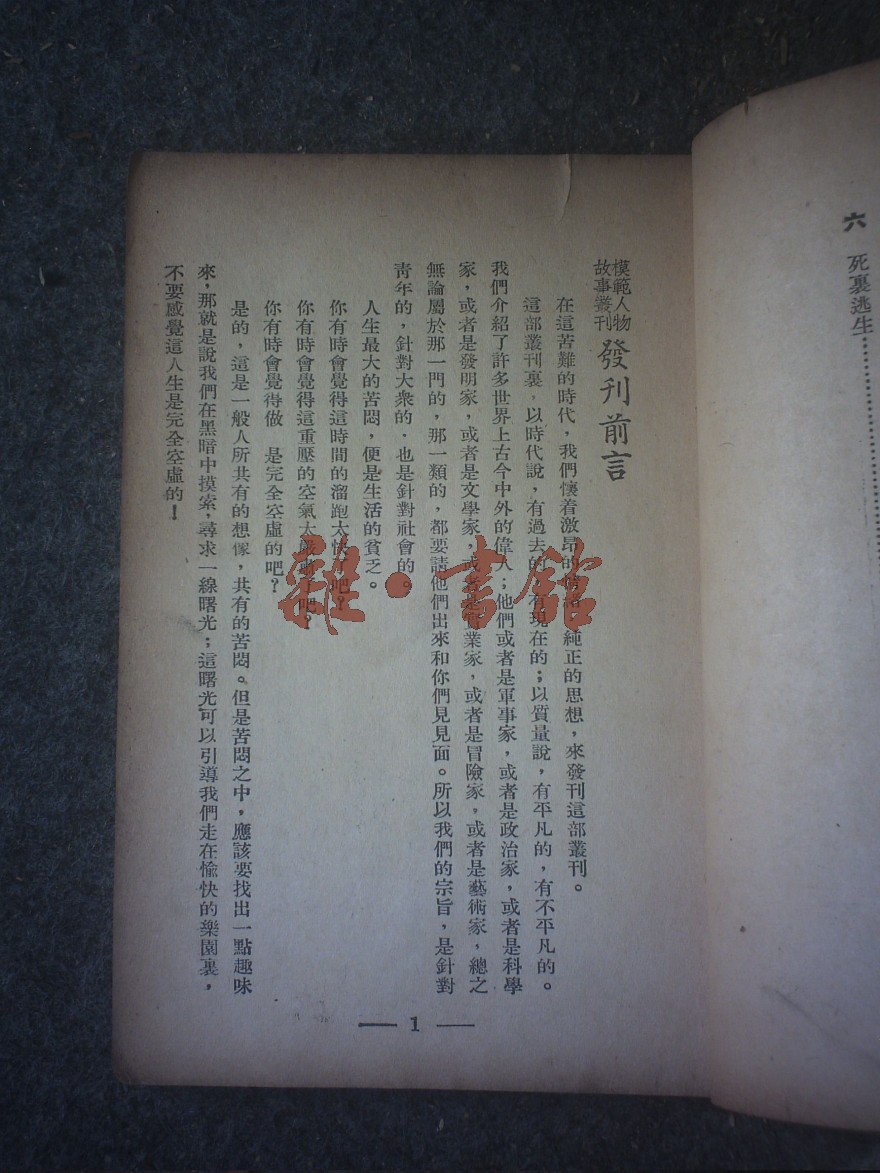 六　死裏逃生…………
模範人物
故事叢刊
發刊前言
在這苦難的時代，我們懷着激昂的情緒，純正的思想，來發刊這部叢刊。
這部叢刊裏，以時代說，有過去的，有現在的；以質量說，有平凡的，有不平凡的。
我們介紹了許多世界上古今中外的偉人；他們或者是軍事家，或者是政治家，或者是科學
家，或者是發明家，或者是文學家，或者是實業家，或者是冒險家，或者是藝術家，總之
無論屬於那一門的，那一類的，都要請他們出來和你們見見面。所以我們的宗旨，是針對
青年的，針對大衆的．也是針對社會的。
人生最大的苦悶，便是生活的貧乏。
你有時會覺得這時間的溜跑太快了吧？
你有時會覺得這重壓的空氣太嚴肅了吧？
你有時會覺得做　是完全空虛的吧？
是的，這是一般人所共有的想像，共有的苦悶。但是苦悶之中，應該要找出一點趣味
來，那就是說我們在黑暗中摸索，尋求一線曙光；這曙光可以引導我們走在愉快的樂園裏，
不要感覺這人生是完全空虛的！
— 1 —
雜·書館